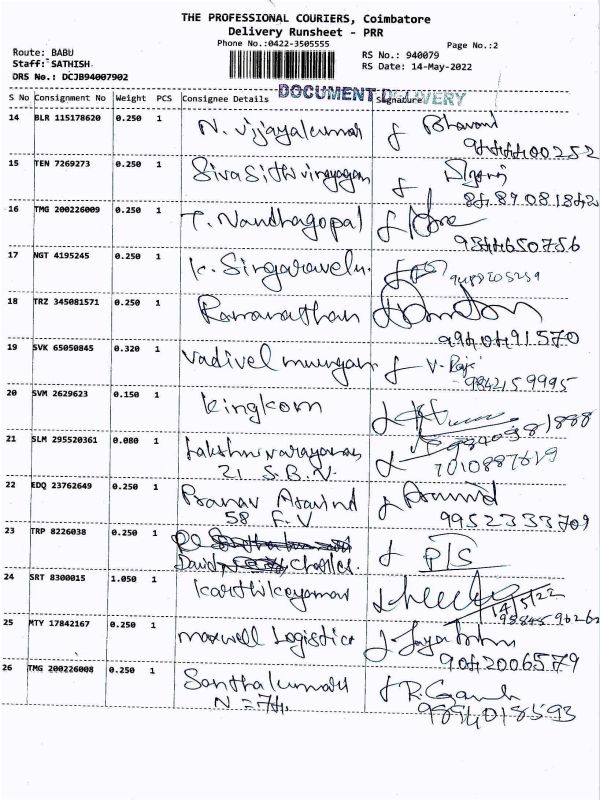 THE PROFESSIONAL COURIERS, Coimbatore
Delivery Runsheet - PRR
Phone No.:0422-3505555
Page No.:2
Route: BABU
Staff: SATHISH
DRS No.: DCJB94007902
RS No.: 940079
RS Date: 14-May-2022
DOCUMENT DELIVERY
S No Consignment No Weight PCS Consignee Details Signature
14 BLR 115178620 0.250 1 N. Vijayakumar
15 TEN 7269273 0.250 1
8489081842
16 TMG 200226009 0.250 1 T. Nandhagopal
9844650756
17 NGT 4195245 0.250 1 K. Singaravelu.
18 TRZ 345081571 0.250 1 Ramanathan
9940491570
19 SVK 65050845 0.320 1 Vadivel murugan V. Raji
9842159995
20 SVM 2629623 0.150 1 Kingkom
21 SLM 295520361 0.080 1 Lakshminarayanan
21 S.B.N. 7010887619
22 EDQ 23762649 0.250 1 Pranav Aravind Aravind
58 F.V 9952333709
23 TRP 8226038 0.250 1
David Charles. P/S
24 SRT 8300015 1.050 1 Karthikeyanan
14/5/22
25 MTY 17842167 0.250 1 Maxwell Logistics
9042006579
26 TMG 200226008 0.250 1 Santhakumari R. Ganesh
N = 74.